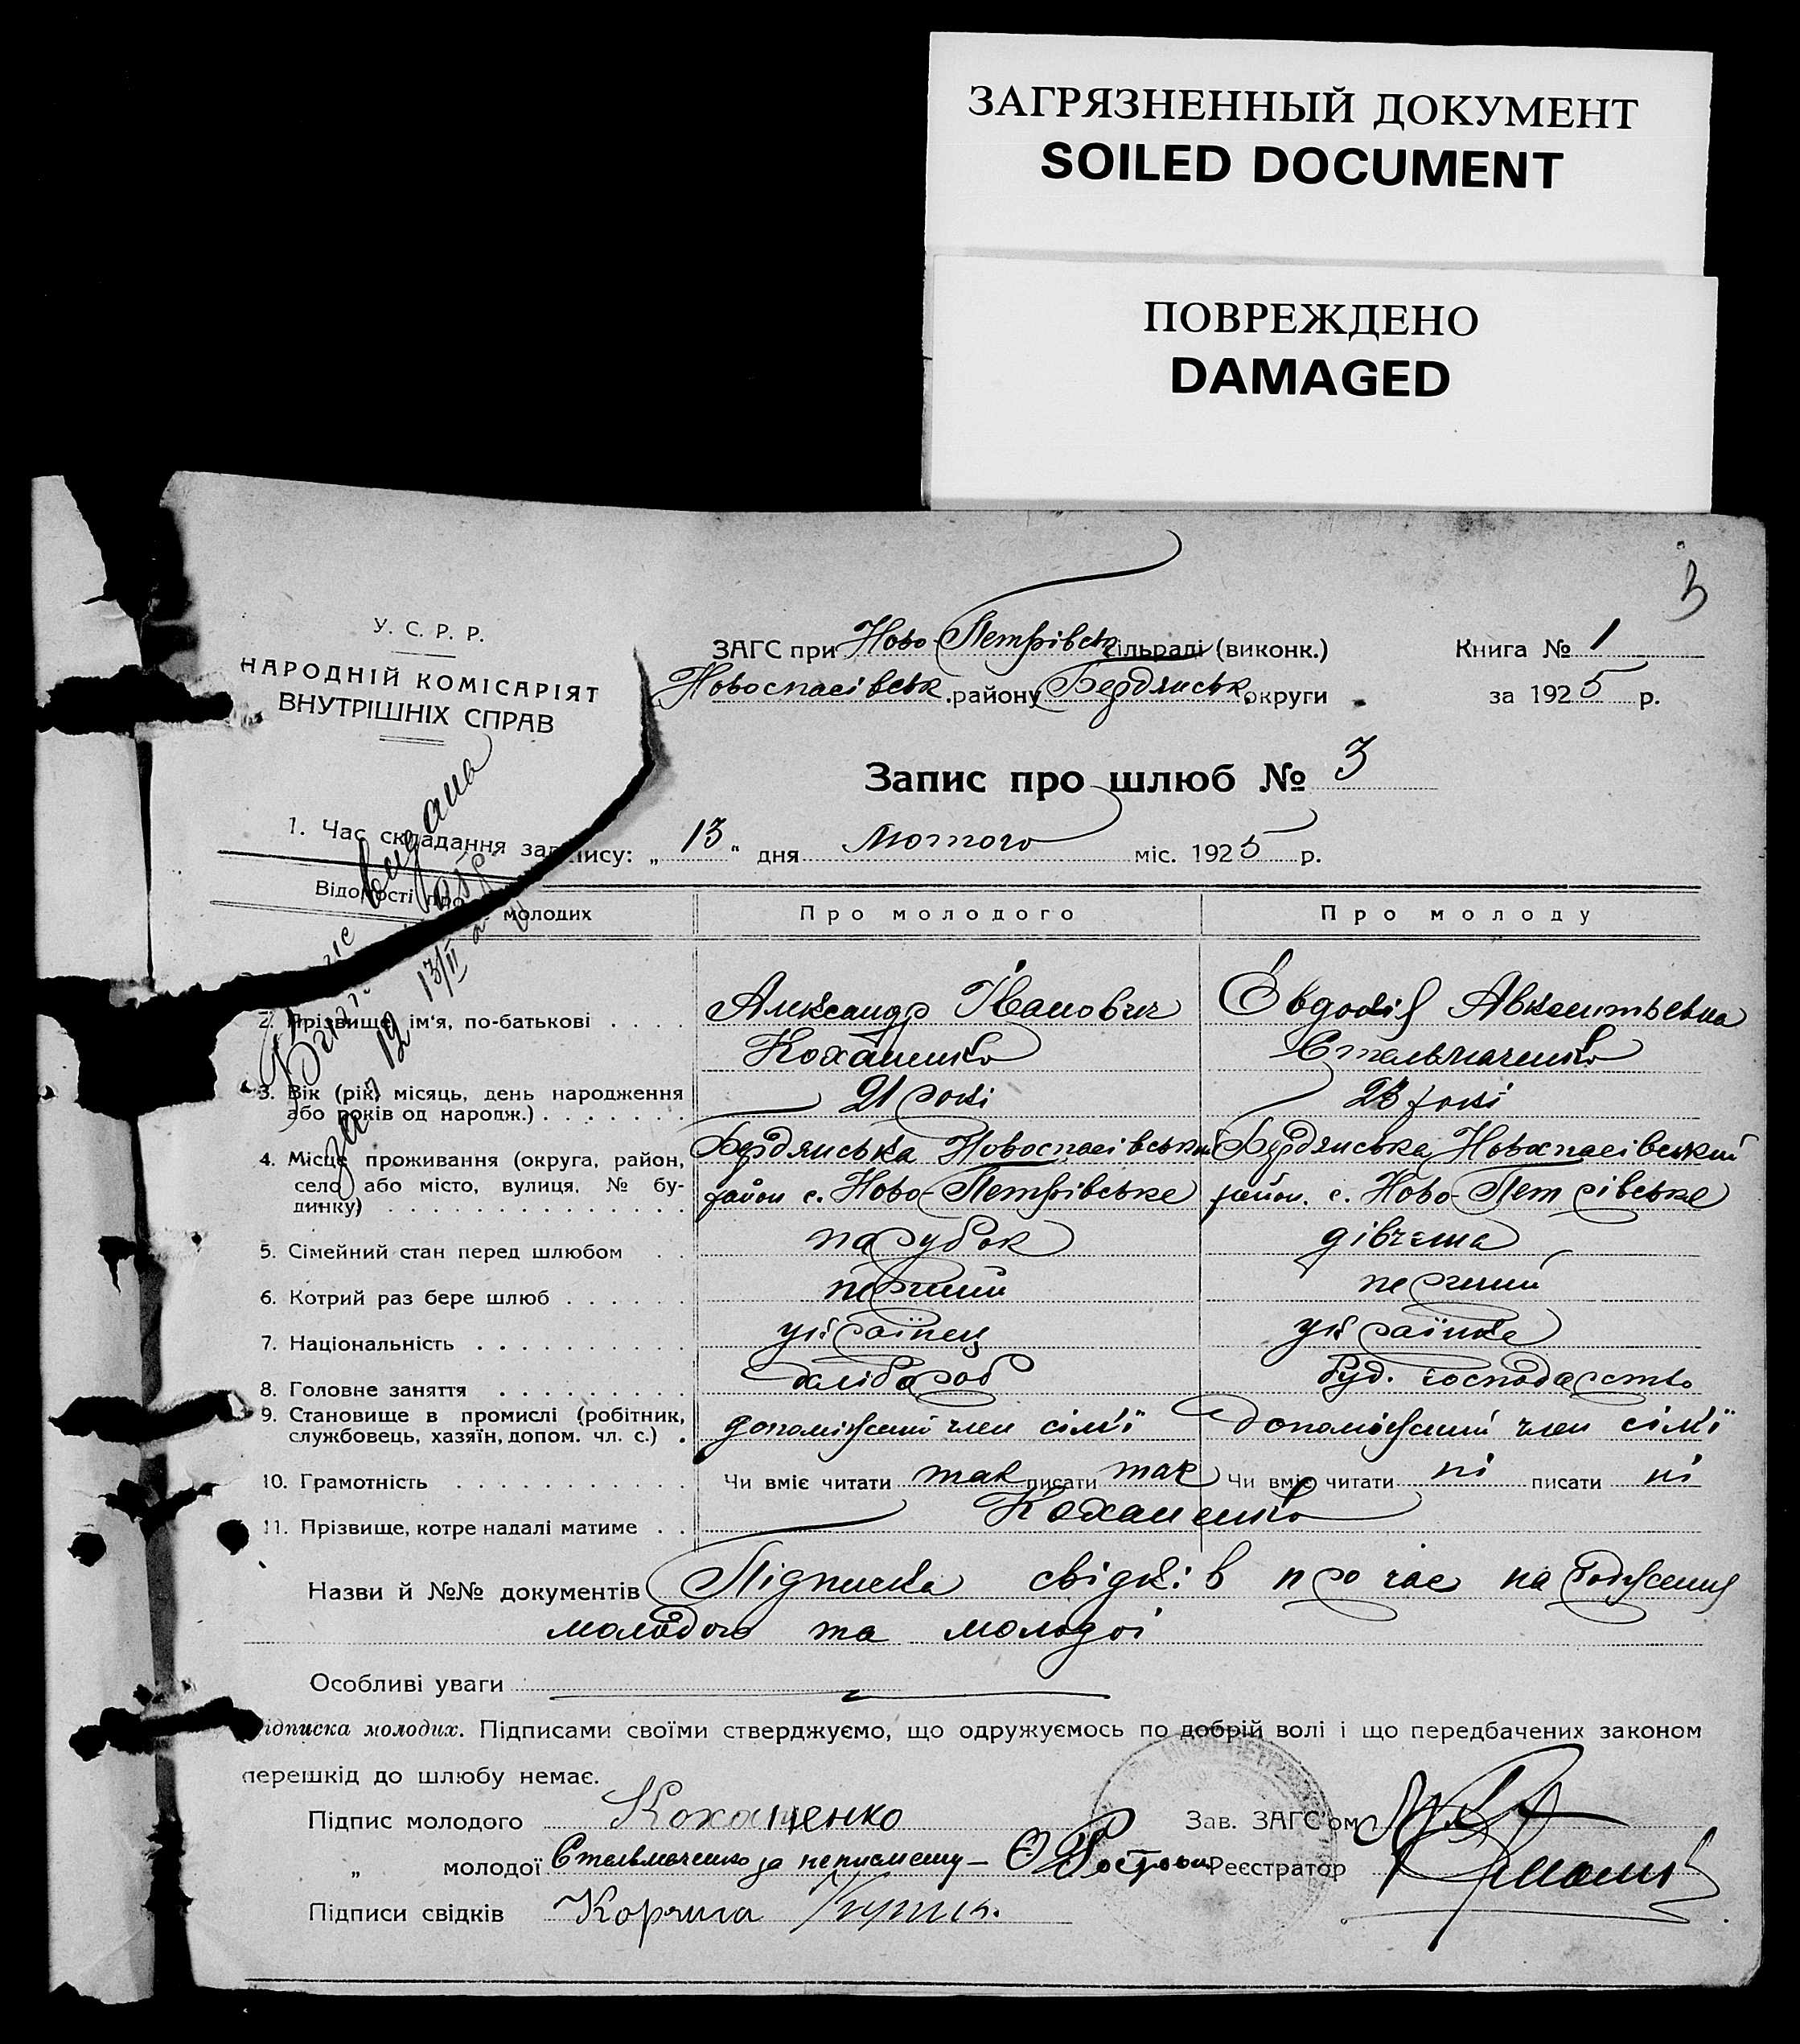 ЗАГРЯЗНЕННЫЙ ДОКУМЕНТ
SOILED DOCUMENT
ПОВРЕЖДЕНО
DAMAGED
3
У. С. Р. Р.
НАРОДНІЙ КОМІСАРІЯТ
ВНУТРІШНІХ СПРАВ
ЗАГС при Ново-Петрівськ сільраді (виконк.)
Новоспасівськ. району Бердянськ. округи
Книга № 1
за 1925 р.
Запис про шлюб № 3
1. Час складання запису: „13" дня Лютого міс. 1925 р.
Відомості про молодих
Про молодого
Про молоду
видана
за № 12 13/II
2. Прізвище, ім'я, по-батькові . . . .
Александр Іванович
Коханенко
Євдокія Авксентьевна
Стельмаченко
3. Вік (рік, місяць, день народження
або років од народж.) . . . . . . .
21 рокі
23 рокі
4. Місце проживання (округа, район,
село або місто, вулиця, № бу-
динку) . . . . . . . . . . . . . .
Бердянська Новоспасівський
район с. Ново-Петрівське
Бердянська Новоспасівський
район. с. Ново-Петрівське
5. Сімейний стан перед шлюбом . .
парубок
дівчина
6. Котрий раз бере шлюб . . . . . .
перший
перший
7. Національність . . . . . . . . . .
українец
українка
8. Головне заняття . . . . . . . . .
хлібороб
буд. господарство
9. Становище в промислі (робітник,
службовець, хазяїн, допом. чл. с.) .
допоміжний член сім'ї
допоміжний член сім'ї
10. Грамотність . . . . . . . . . . .
Чи вміє читати так писати так
Чи вміє читати ні писати ні
11. Прізвище, котре надалі матиме . .
Коханенко
Назви й №№ документів Підписка свідків про час народження
молодого та молодої
Особливі уваги
Підписка молодих. Підписами своїми стверджуємо, що одружуємось по добрій волі і що передбачених законом
перешкід до шлюбу немає.
Підпис молодого Коханенко
Зав. ЗАГС'ом
„ молодої Стельмаченко за неписьмену —
Реєстратор
Підписи свідків Корчига